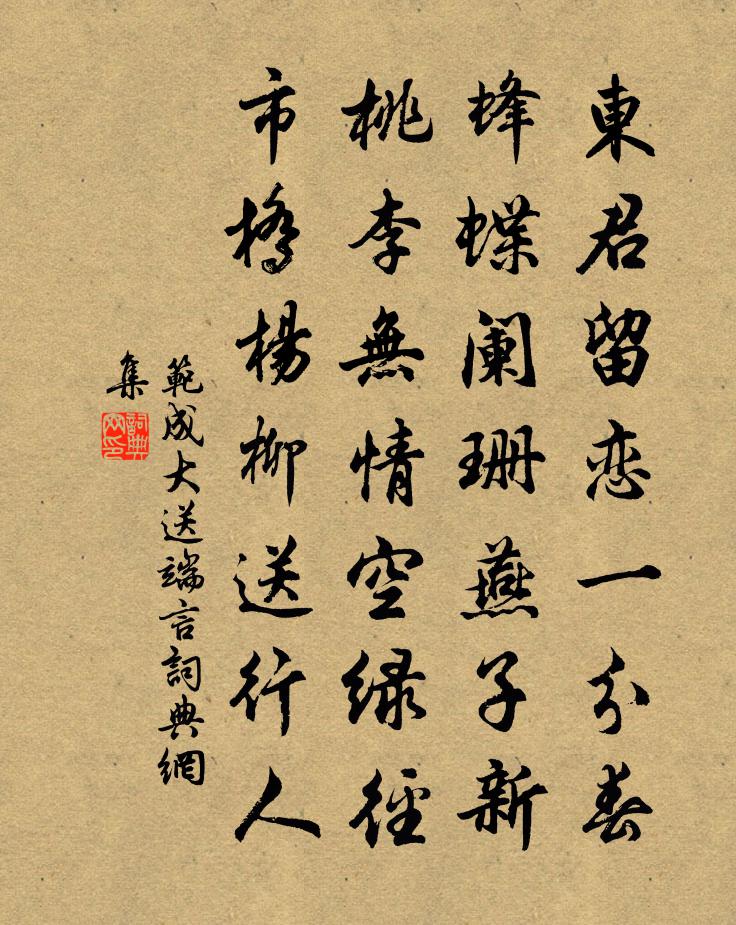 東君留恋一分春
蜂蝶阑珊燕子新
桃李無情空绿徑
市橋楊柳送行人
範成大送端言詞典網
集
詞典網印